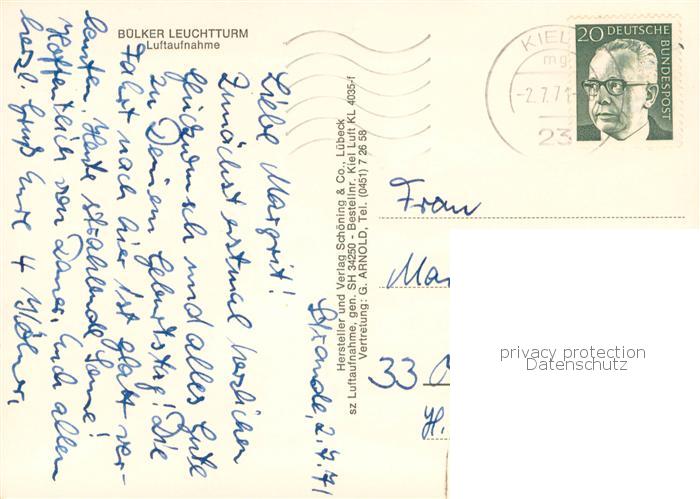 BÜLKER LEUCHTTURM
Luftaufnahme
Strande, 2.7.71
Liebe Margrit!
Zunächst einmal herzlichen
Glückwunsch und alles Gute
zu Deinem Geburtstag! Die
Fahrt nach hier ist glatt ver-
laufen. Heute strahlende Sonne!
Hoffentlich von Dauer. Euch allen
herzl. Gruß Eure 4
Hersteller und Verlag Schöning & Co., Lübeck
sz Luftaufnahme, gen. SH 34250 - Bestellnr. Kiel Luft KL 4035-f
Vertretung: G. ARNOLD, Tel. (0451) 7 26 58
KIEL
mg
-2.7.71-
23
20 DEUTSCHE
BUNDESPOST
Frau
Mar
33
H.
privacy protection
Datenschutz